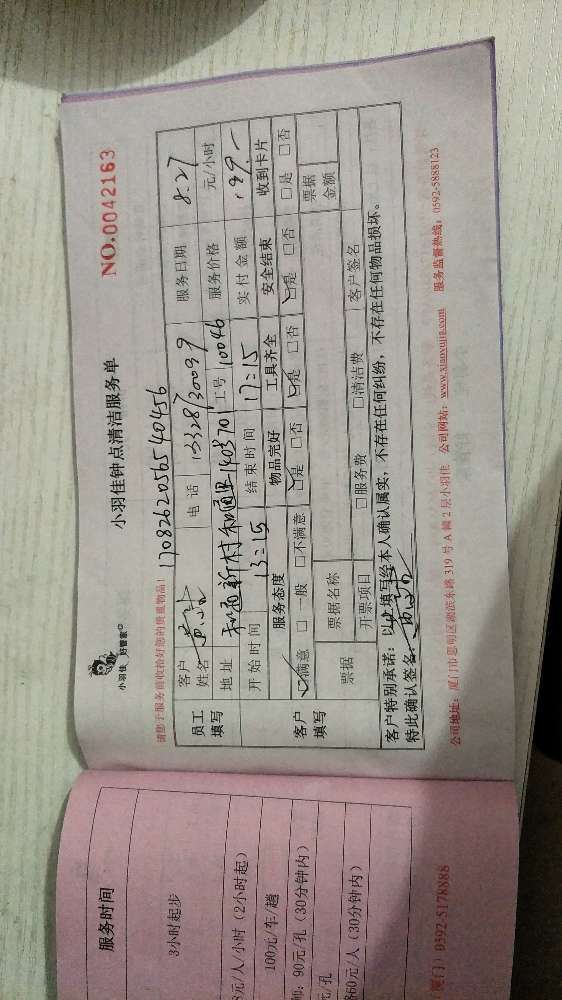 小羽佳 好管家
小羽佳钟点清洁服务单
NO.0042163
请您于服务前收拾好您的贵重物品!
1708262056540456
员工填写
客户姓名
电话 13328730039
服务日期 8.27
地址 和通新村和通里140370
工号 10046
服务价格 元/小时
开始时间 13:15
结束时间 17:15
实付金额 199.-
客户填写
服务态度 物品完好 工具齐全 安全结束 收到卡片
☑满意 □一般 □不满意 ☑是 □否 ☑是 □否 ☑是 □否 □是 □否
票据 票据名称 票据金额
开票项目 □服务费 □清洁费 客户签名
客户特别承诺:以上填写经本人确认属实,不存在任何纠纷,不存在任何物品损坏。
特此确认签名:
公司地址:厦门市思明区湖滨东路 319 号 A 幢 2 层小羽佳 公司网站:www.xiaoyujia.com 服务监督热线:0592-5888123
服务时间
3小时起步
元/人/小时(2小时起)
100元/车/趟
:90元/孔(30分钟内)
元/孔
360元/人(30分钟内)
厦门:0592-5178888